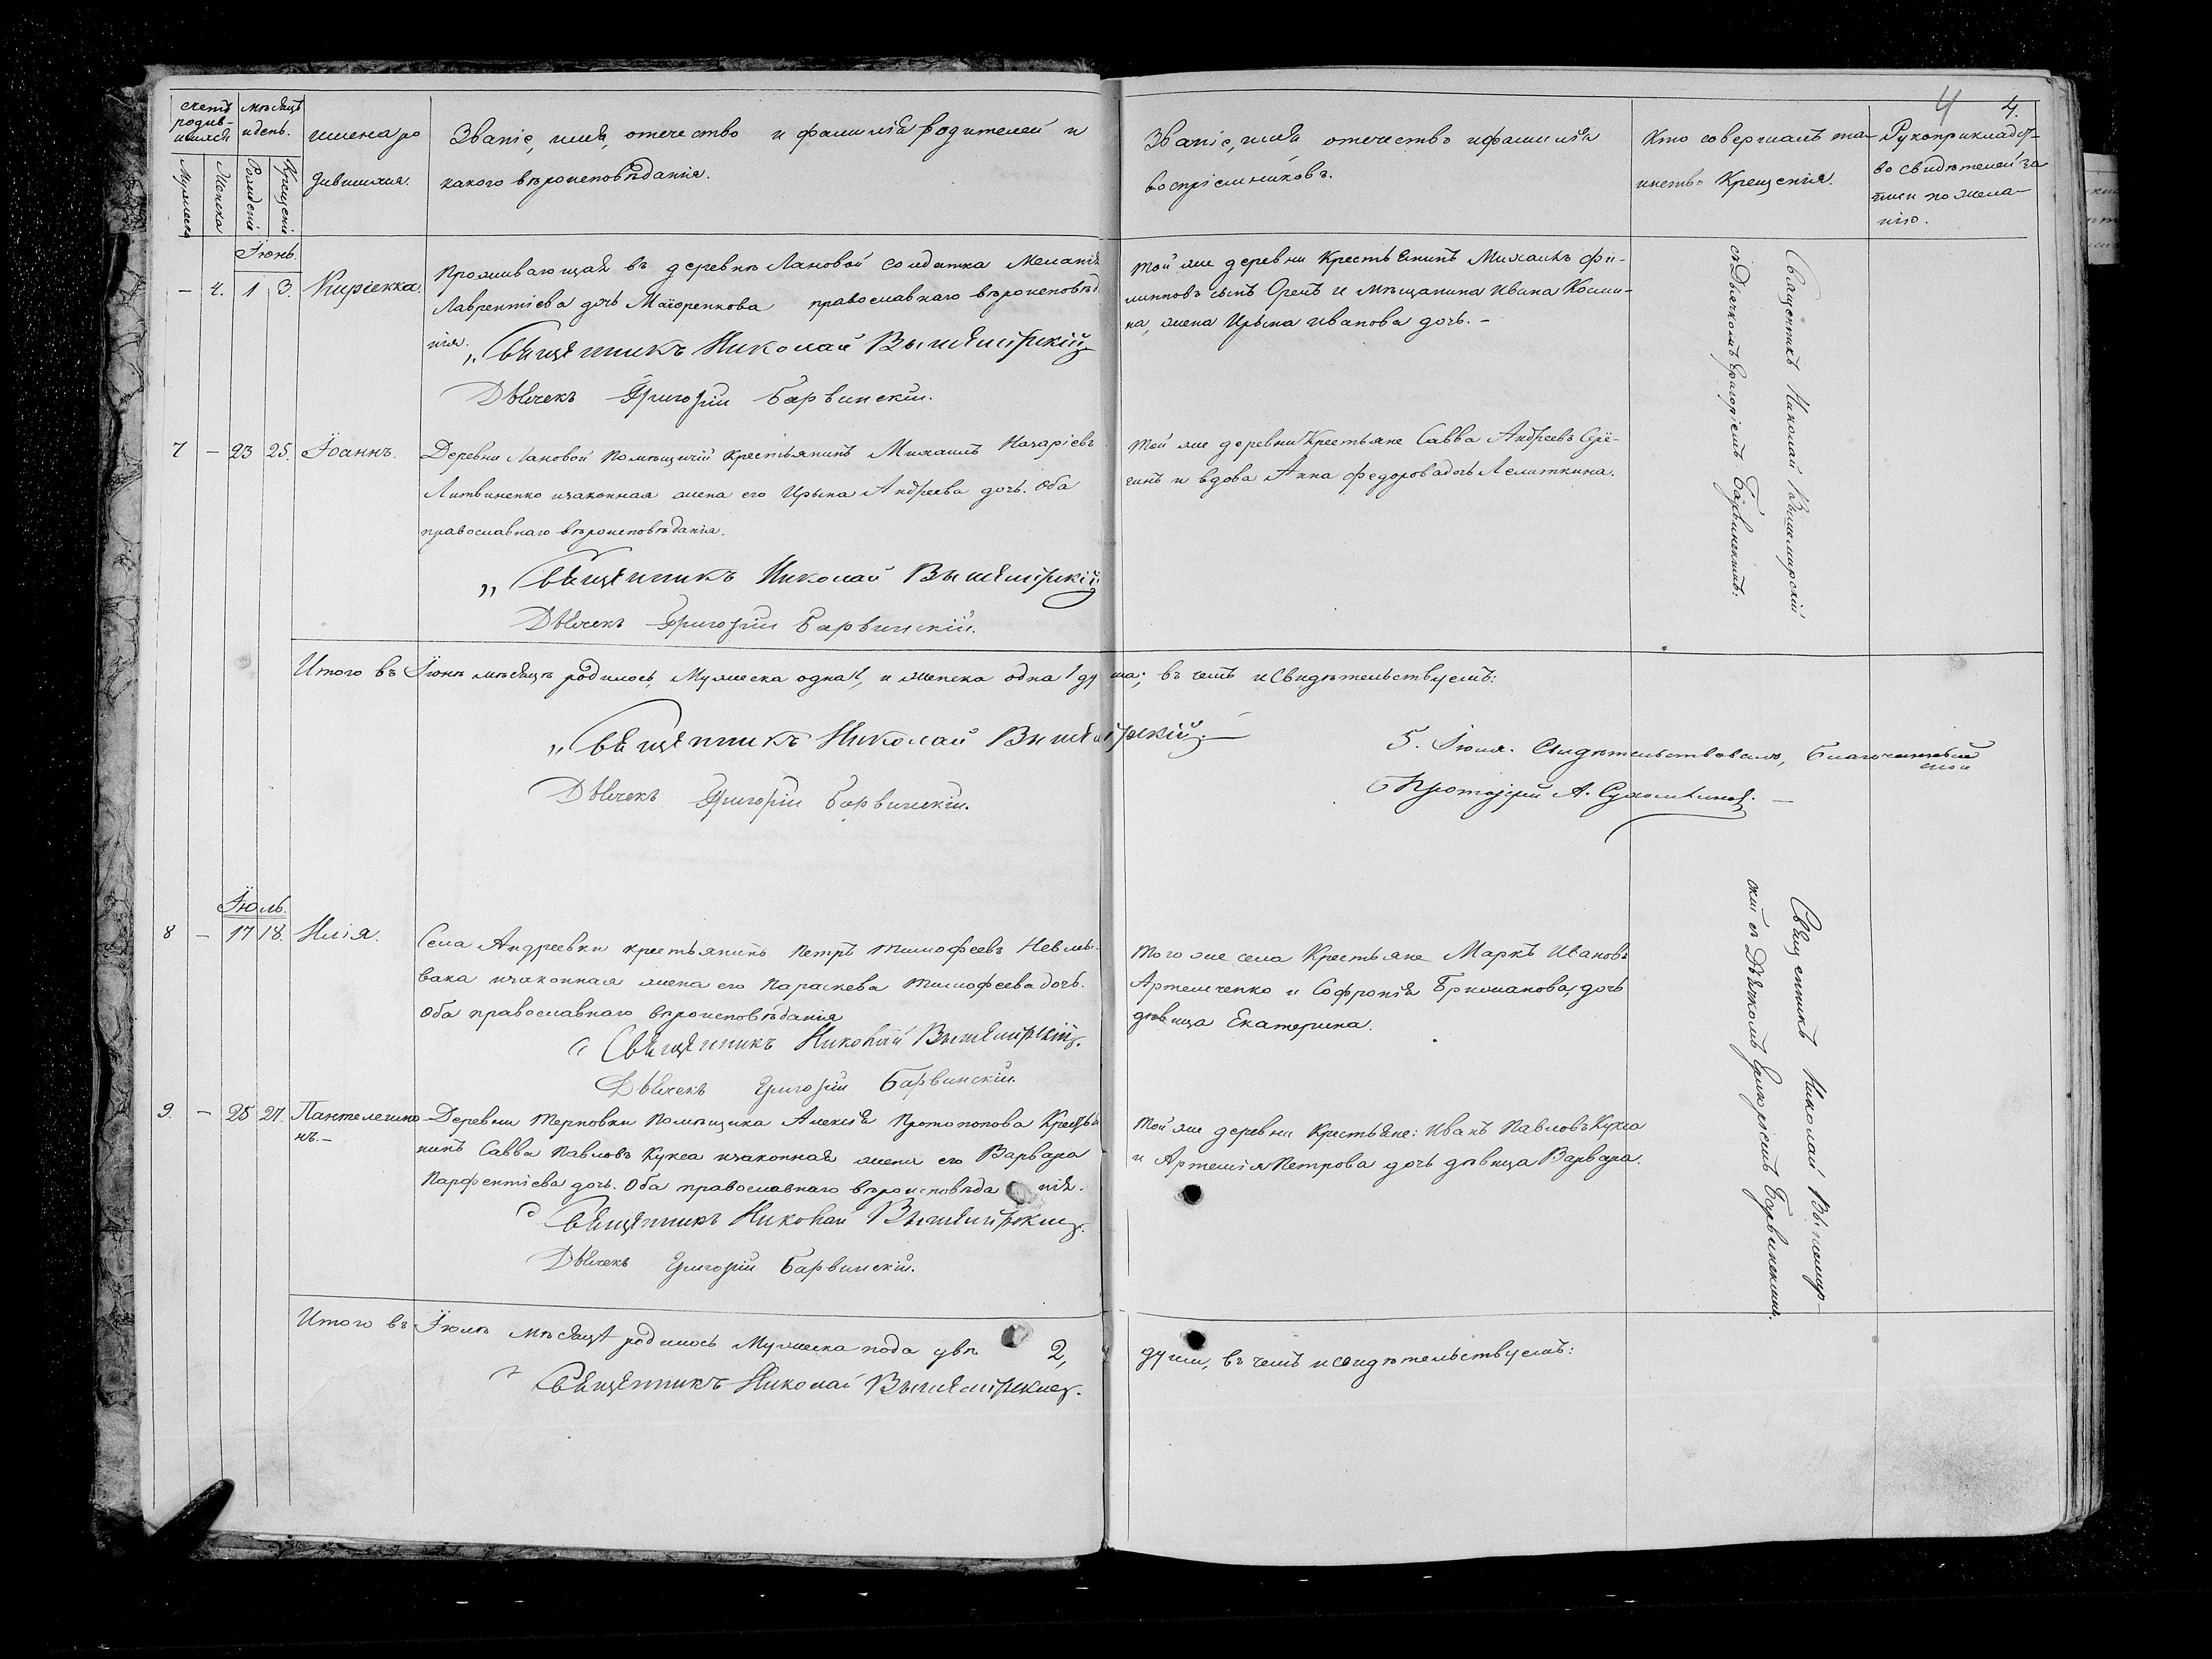 4 4.
счетъ родив-шихся
Мужеска
Женска
мѣсяцъ и день.
Рожденія
Крещенія
имена родившихся.
Званіе, имя, отечество и фамилія родителей и
какого вѣроисповѣданія.
Званіе, имя отечество и фамилія
воспріемниковъ.
Кто совершалъ та-
инство Крещенія.
Рукоприкладст-
во свидѣтелей за
писи по жела-
нію.
Іюнь.
– 4. 1 3. Киріекка.
Проживающая въ деревнѣ Лановой солдатка Меланія
Лаврентіева дочь Маіоренкова православнаго вѣроисповѣда
нія.
„Священникъ Николай Вышемірскій
Дьячекъ Григорій Барвинскій.
той же деревни Крестьянинъ Михаилъ Фи-
липповъ сынъ Орелъ и мѣщанина Ивана Косми-
на, жена Ирына Иванова дочь. –
Священникъ Николай Вышемирскій
съ Дьячкомъ Григоріемъ Барвинскимъ.
7 – 23 25. Іоаннъ.
Деревни Лановой помѣщичій крестьянинъ Михаилъ Назаріевъ
Литвиненко изаконная жена его Ирына Андреева дочь. Оба
православнаго вѣроисповѣданія.
„Священникъ Николай Вышемірскій
Дьячекъ Григорій Барвинскій.
той же деревни Крестьяне Савва Андреевъ
и вдова Анна Федорова дочь
Итого въ Іюнѣ мѣсяцѣ родилось, Мужеска одна 1, и женска одна 1 душа; въ чемъ и свидѣтельствуемъ:
„Священникъ Николай Вышемірскій. –
Дьячекъ Григорій Барвинскій.
5. Іюля. Свидѣтельствовалъ, Благочинный
Протоіерей А.
Іюль.
8 – 17 18. Илія.
Села Андреевки крестьянинъ Петръ Тимофеевъ
изаконная жена его Параскева Тимофеева дочь.
Оба православнаго вѣроисповѣданія
Священникъ Николай Вышемірскій.
Дьячекъ Григорій Барвинскій.
того же села Крестьяне Маркъ Ивановъ
Артемченко и Софронія дочь
дѣвица Екатерина.
Священникъ Николай Вышемир-
скій съ Дьячкомъ Григоріемъ Барвинскимъ.
9. – 25 27. Пантелеимо
нъ. –
Деревни Терновки Помѣщика Алексія Протопопова Крестья
нинъ Савва Павловъ Кукса изаконная жена его Варвара
Парфентіева дочь. Оба православнаго вѣроисповѣданія.
Священникъ Николай Вышемірскій.
Дьячекъ Григорій Барвинскій.
той же деревни Крестьяне: Иванъ Павловъ Кукса
и Артемія Петрова дочь дѣвица Варвара.
Итого въ Іюлѣ мѣсяцѣ родилось Мужеска пола двѣ 2, души, въ чемъ и свидѣтельствуемъ:
Священникъ Николай Вышемірскій.